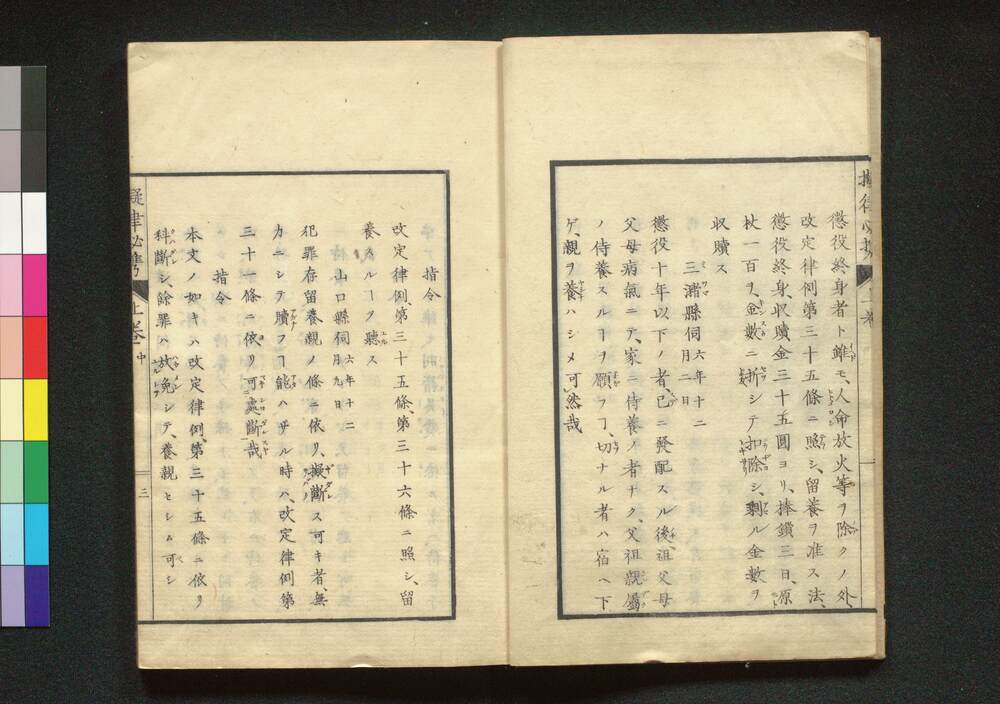 懲役終身者ト雖モ、人命放火等ヲ除クノ外、
改定律例第三十五條ニ照シ、留養ヲ准ス法、
懲役終身、収贖金三十五圓ヨリ、捧鎖三日、原
杖一百ヲ、金數ニ折シテ扣除シ、剩ル金數ヲ
収贖ス
三潴縣伺 六年十二月二日
懲役十年以下ノ者、已ニ發配スル後、祖父母
父母病氣ニテ、家ニ侍養ノ者ナク、父祖親屬
ノ侍養スルヿヲ願フヿ、切ナル者ハ宿ヘ下
ゲ、親ヲ養ハシメ可然哉
指令
改定律例、第三十五條、第三十六條ニ照シ、留
養スルヿヲ聽ス
山口縣伺 六年十二月九日
犯罪存留養親ノ條ニ依リ、擬斷ス可キ者、無
力ニシテ贖フヿ能ハザル時ハ、改定律例第
三十一條ニ依リ可處斷哉
指令
本文ノ如キハ改定律例、第三十五條ニ依リ
科斷シ、餘罪ハ放免シテ、養親セシム可シ
擬律必携
上巻
中
三